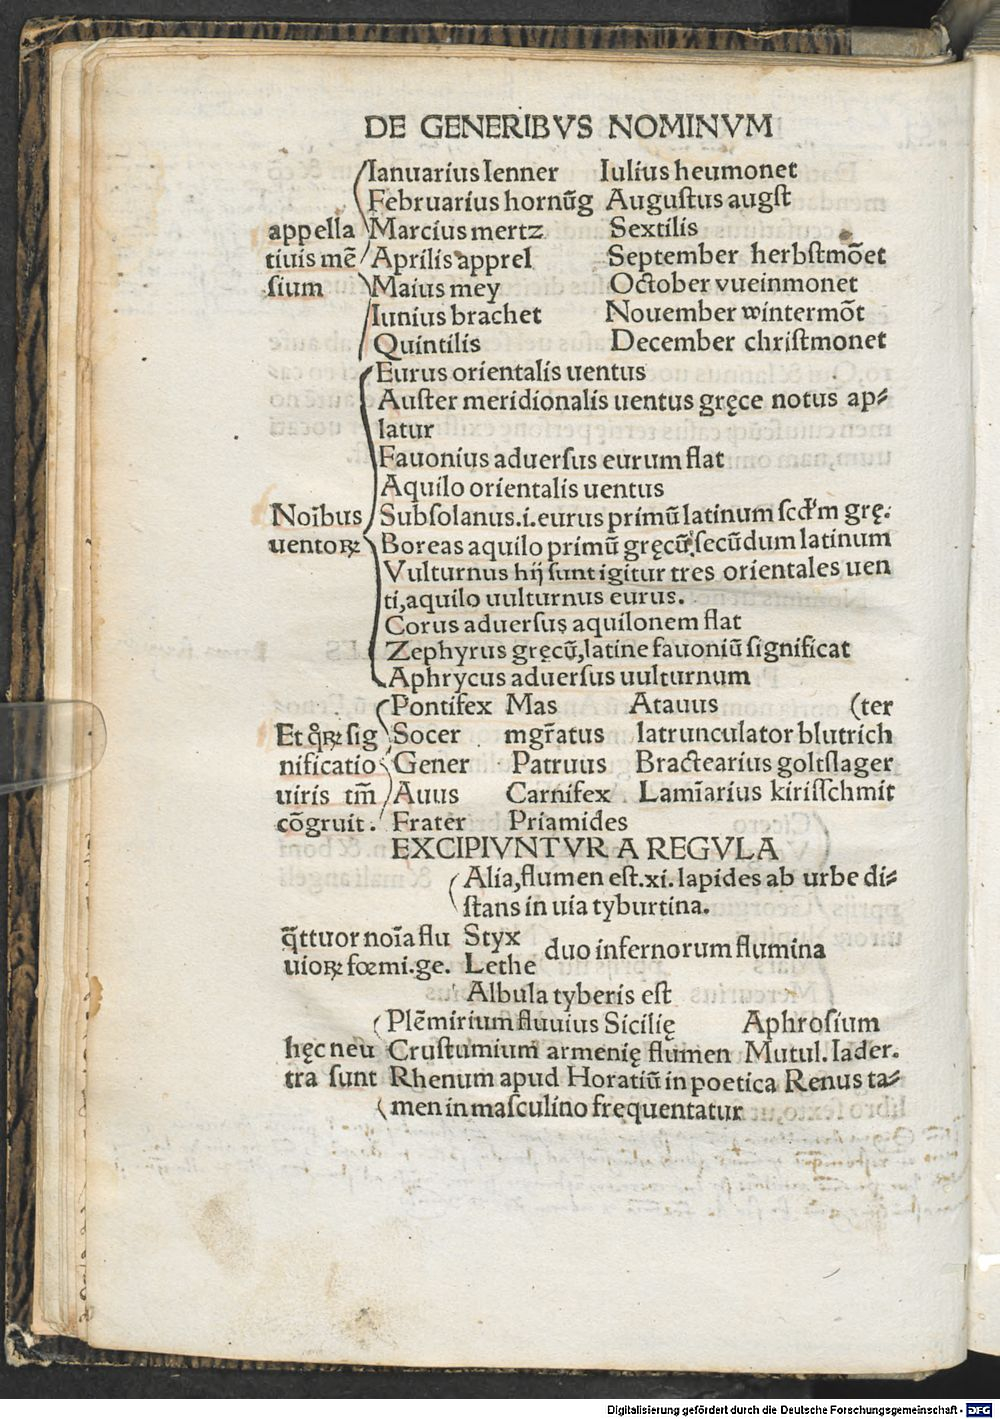 DE GENERIBVS NOMINVM
Ianuarius Ienner Iulius heumonet
Februarius hornūg Auguſtus augſt
appella Marcius mertz Sextilis
tiuis mē Aprilis apprel September herbſtmōet
ſium Maius mey October vueinmonet
Iunius brachet Nouember wintermōt
Quintilis December chriſtmonet
Eurus orientalis uentus
Auſter meridionalis uentus gręce notus ap⸗
latur
Fauonius aduerſus eurum flat
Aquilo orientalis uentus
Noība Subſolanus.i.eurus primū latinum ſcd'm grę.
uentoꝝ Boreas aquilo primū gręcū, ſecūdum latinum
Vulturnus hij ſunt igitur tres orientales uen
ti, aquilo uulturnus eurus.
Corus aduerſus aquilonem flat
Zephyrus gręcū, latine fauoniū ſignificat
Aphrycus aduerſus uulturnum
Pontifex Mas Atauus (ter
Et q̄ꝝ ſig Socer mgr̄atus latrunculator blutrich
nificatio Gener Patruus Bractearius goltſlager
uiris tm̄ Auus Carnifex Lamīarius kiriſſchmit
cōgruit. Frater Priamides
EXCIPIVNTVR A REGVLA
Alia, flumen eſt.xi.lapides ab urbe di⸗
ſtans in uia tyburtina.
q̄ttuor noīa flu Styx duo infernorum flumina
uioꝝ fœmi.ge. Lethe
Albula tyberis eſt
Plēmirium fluuius Sicilię Aphroſium
hęc neu Cruſtumium armenię flumen Mutul. Iader.
tra ſunt Rhenum apud Horatiū in poetica Renus ta⸗
men in maſculino frequentatur
Digitalisierung gefördert durch die Deutsche Forschungsgemeinschaft - DFG